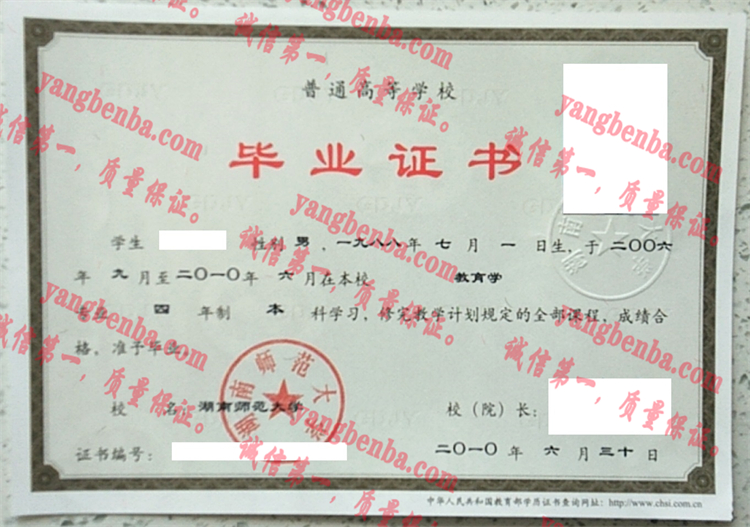 普通高等学校
毕业证书
学生 性别 男 ,一九八八年 七 月 一 日生,于 二〇〇六
年 九 月至二〇一〇年 六 月在本校 教育学
专业 四 年制 本 科学习,修完教学计划规定的全部课程,成绩合
格,准予毕业。
校 名:湖南师范大学
校(院)长:
证书编号:
二〇一〇 年 六 月 三十 日
中华人民共和国教育部学历证书查询网址:http://www.chsi.com.cn
湖南师范大学
yangbenba.com
诚信第一,质量保证。
yangbenba.com
诚信第一,质量保证。
yangbenba.com
诚信第一,质量保证。
yangbenba.com
诚信第一,质量保证。
yangbenba.com
诚信第一,质量保证。
yangbenba.com
诚信第一,质量保证。
yangbenba.com
诚信第一,质量保证。
yangbenba.com
诚信第一,质量保证。